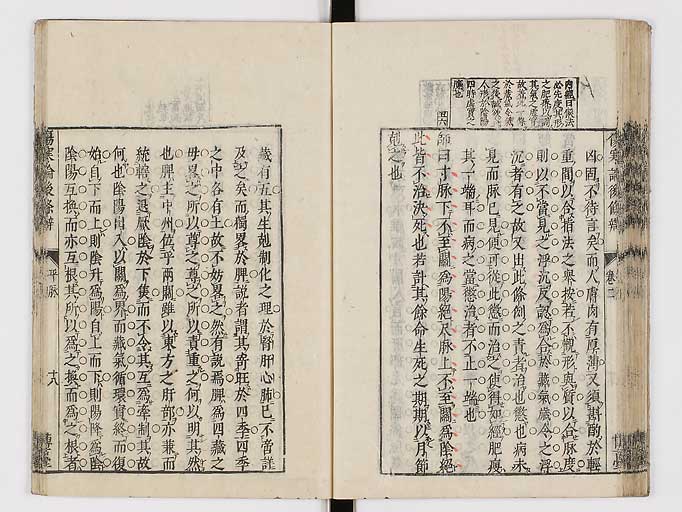 凶固不待言矣而人膚肉有厚薄又須斟酌於輕
重間以合指法之舉按若不襯形與質以合脉度
則以不當見之浮沉反認爲合於藏氣歲令之浮
沉者有之故又出此條倒之責者治也愆也病未
見而脉已見便可從此愆而治之使得如經肥瘦
其一端耳而病之當愆治者不止一端也
師曰寸脉下不至關爲陽絕尺脉上不至關爲陰絕
此皆不治決死也若計其餘命生死之期期以月節
剋之也
傷寒論後條辨
卷二
歲有五其生剋制化之理於腎肝心肺已不啻詳
及之矣而獨畧於脾說者謂其寄旺於四季四季
之中各有土故不妨畧之然有説焉脾爲四藏之
母畧之所以尊之尊之所以責重之何以明其然
也脾主中州位乎兩關雖以東方之肝部亦兼而
統轄之退厥陰於下焦而不令其互爲牽制其故
何也陰陽出入以關爲界而藏氣循環實終而復
始自下而上則陰升爲陽自上而下則陽降爲陰
陰陽互換而亦互根其所以爲之換而爲之根者
傷寒論後條辨
平脉
十八